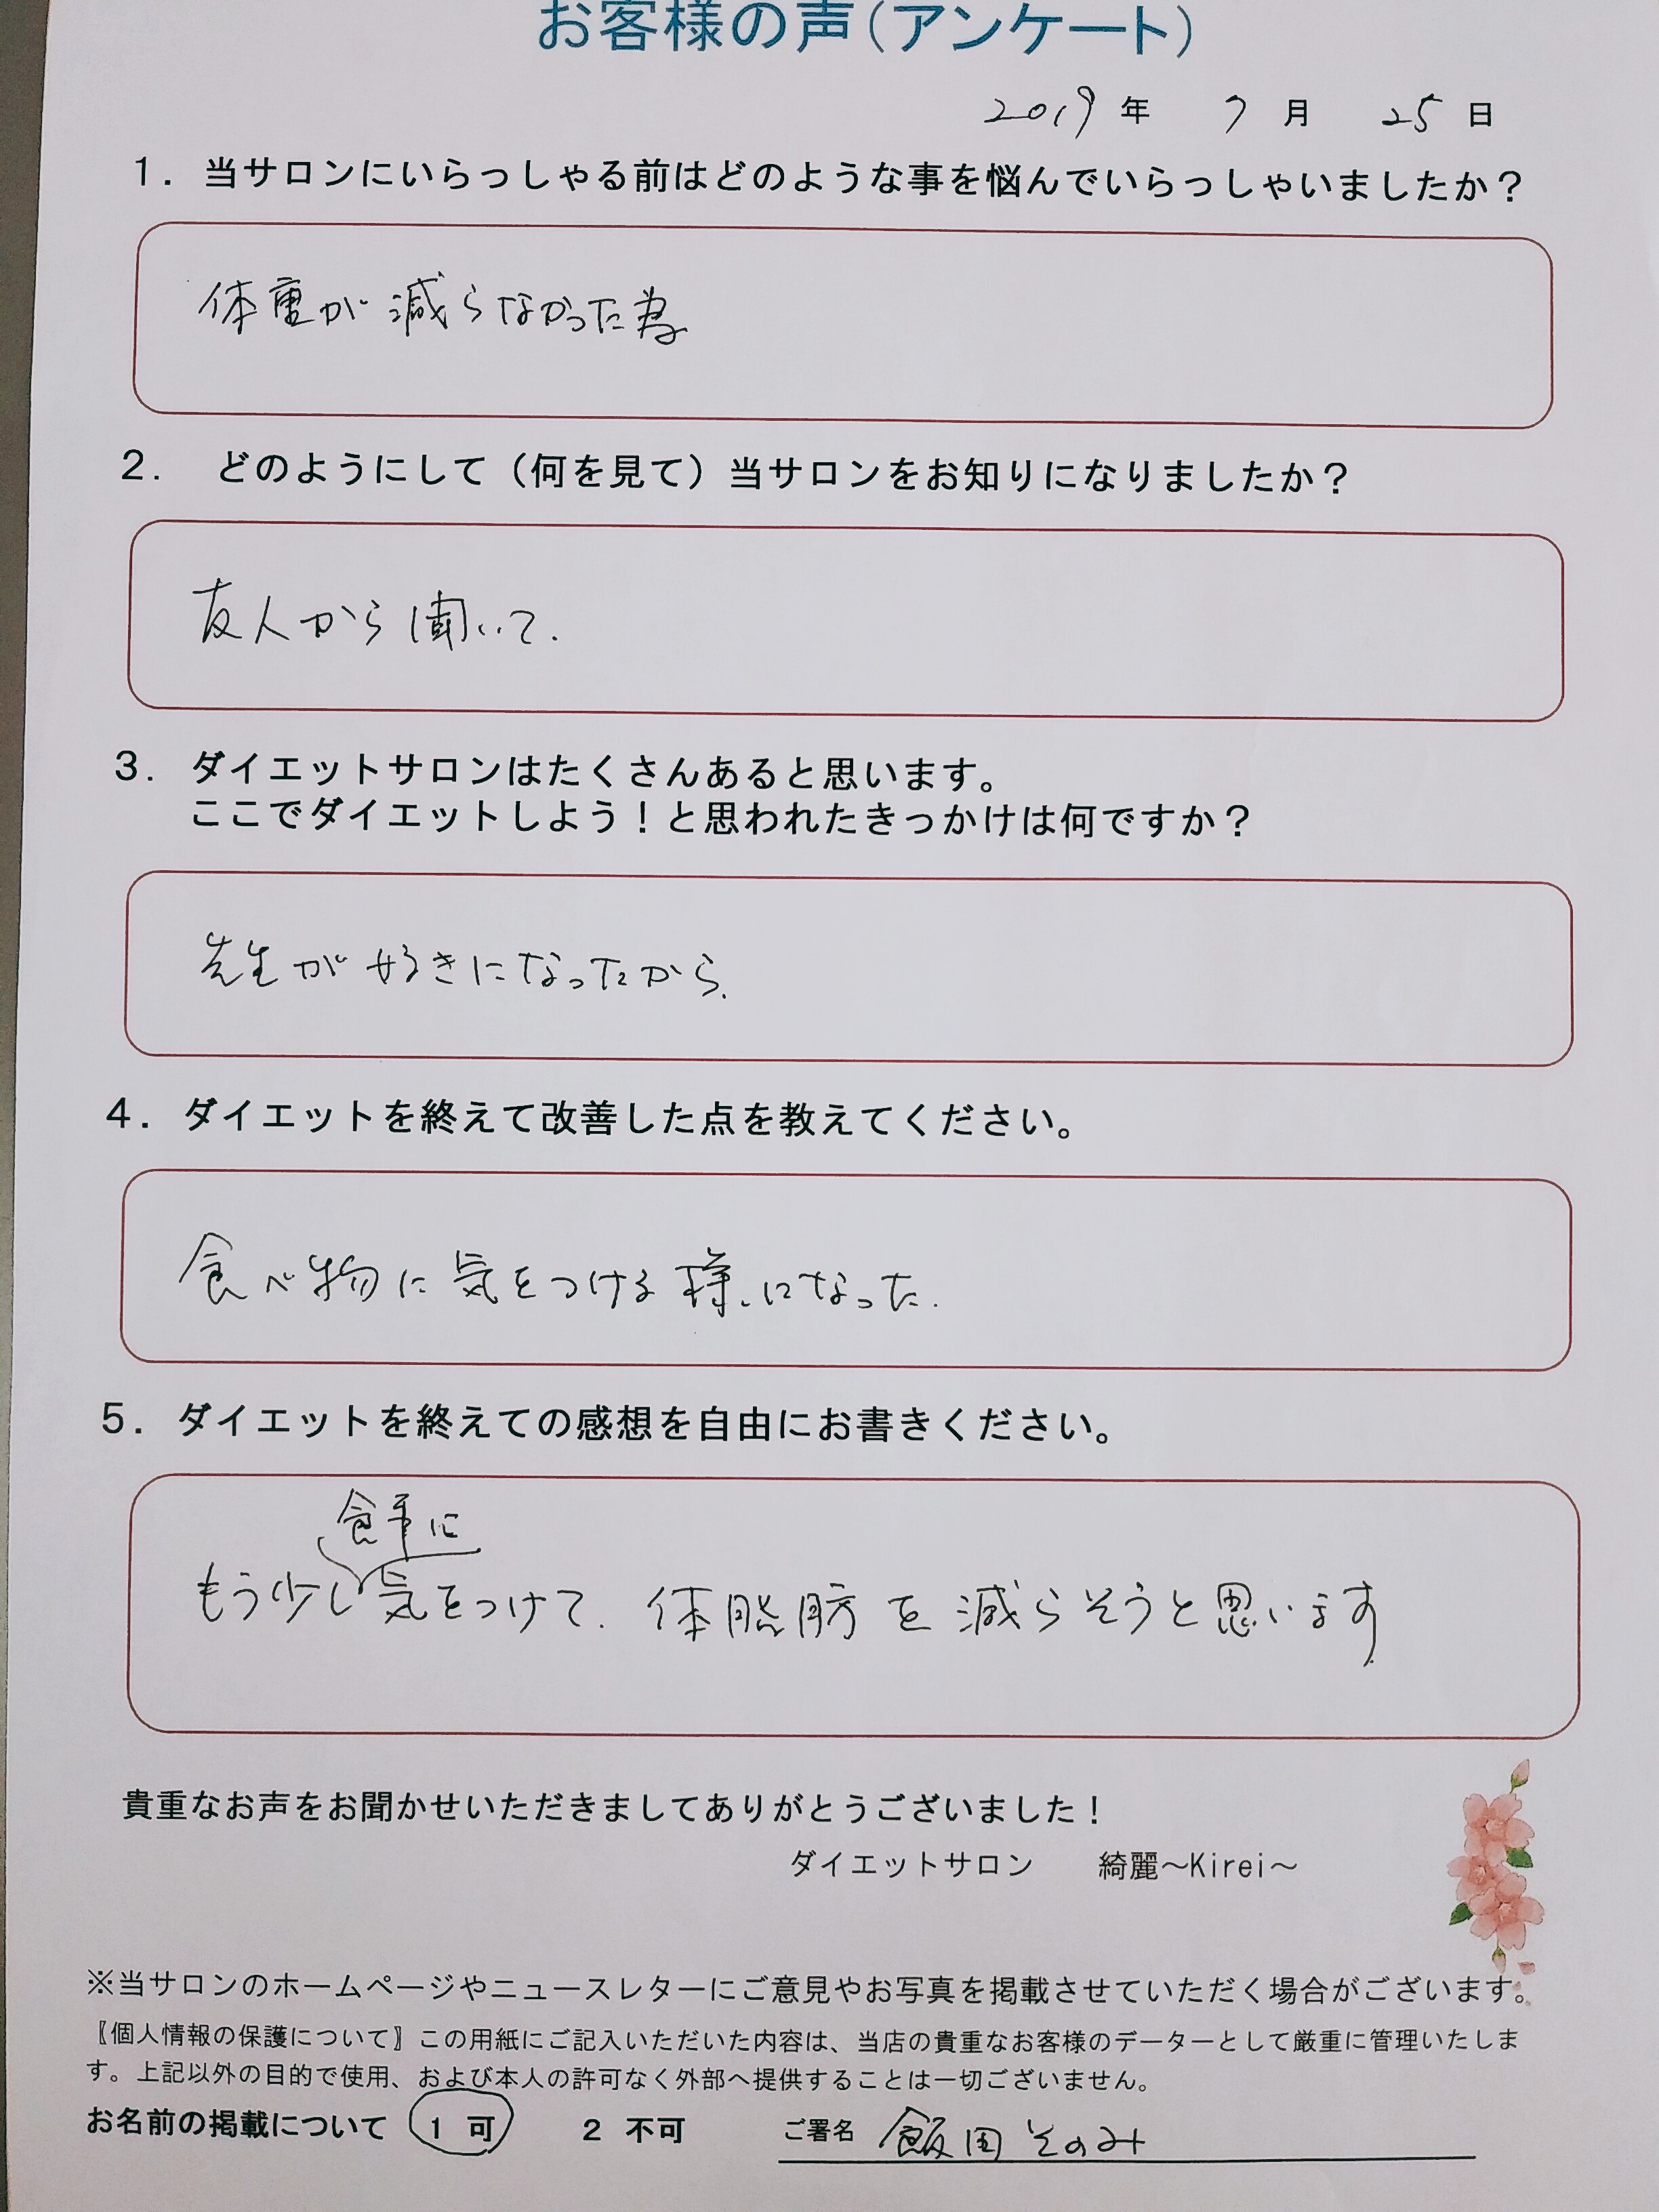 お客様の声（アンケート）
2019 年 7 月 25 日
1．当サロンにいらっしゃる前はどのような事を悩んでいらっしゃいましたか？
体重が減らなかった為
2． どのようにして（何を見て）当サロンをお知りになりましたか？
友人から聞いて.
3．ダイエットサロンはたくさんあると思います。
ここでダイエットしよう！と思われたきっかけは何ですか？
先生が好きになったから.
4．ダイエットを終えて改善した点を教えてください。
食べ物に気をつける様になった.
5．ダイエットを終えての感想を自由にお書きください。
食事に
もう少し気をつけて. 体脂肪を減らそうと思います.
貴重なお声をお聞かせいただきましてありがとうございました！
ダイエットサロン 綺麗～Kirei～
※当サロンのホームページやニュースレターにご意見やお写真を掲載させていただく場合がございます。
〖個人情報の保護について〗この用紙にご記入いただいた内容は、当店の貴重なお客様のデーターとして厳重に管理いたしま
す。上記以外の目的で使用、および本人の許可なく外部へ提供することは一切ございません。
お名前の掲載について 1 可 2 不可 ご署名 飯田 そのみ